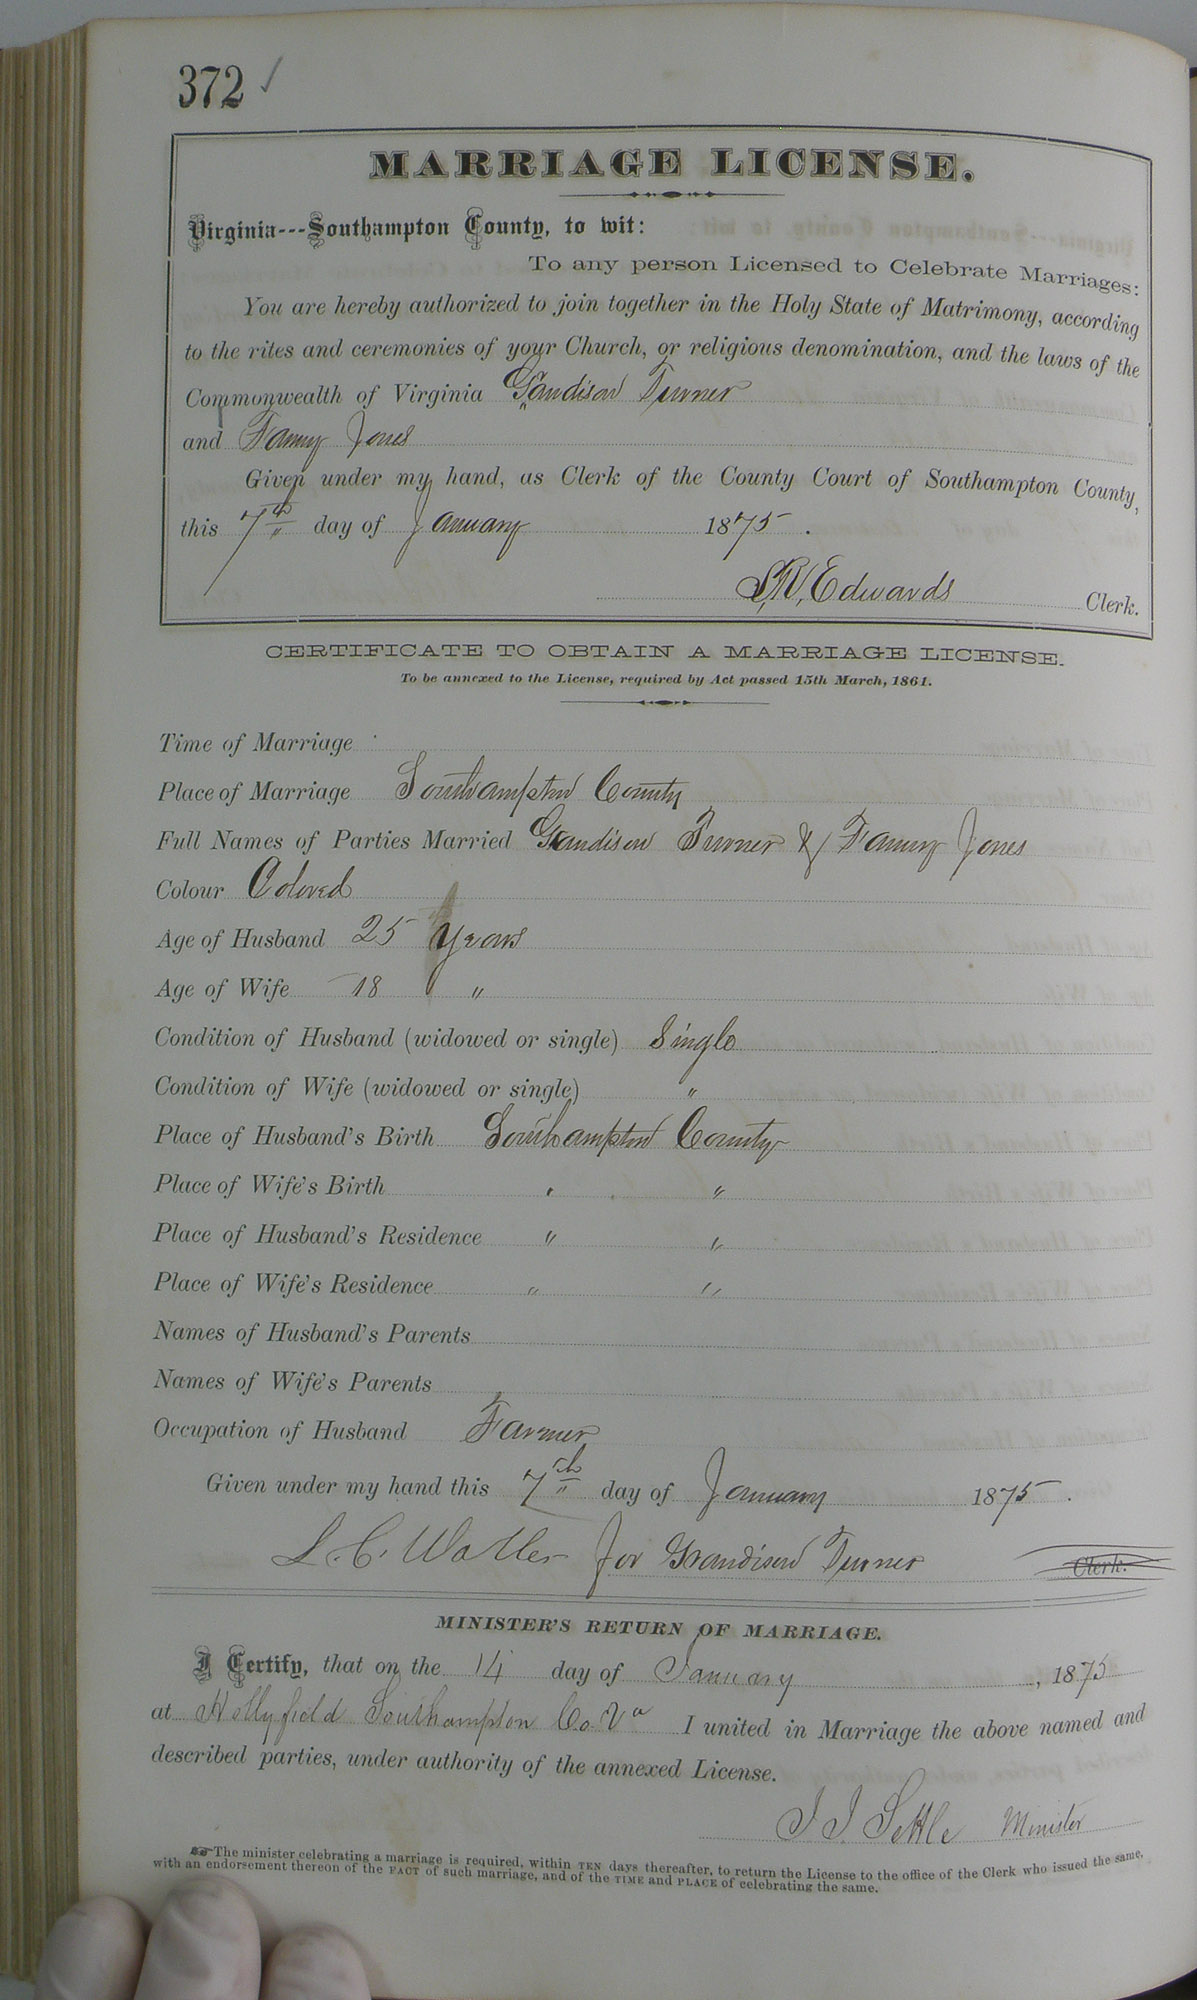 372 ✓
MARRIAGE LICENSE.
Virginia---Southampton County, to wit:
To any person Licensed to Celebrate Marriages:
You are hereby authorized to join together in the Holy State of Matrimony, according
to the rites and ceremonies of your Church, or religious denomination, and the laws of the
Commonwealth of Virginia Grandison Turner
and Fanny Jones
Given under my hand, as Clerk of the County Court of Southampton County,
this 7th day of January 1875.
Edwards Clerk.
CERTIFICATE TO OBTAIN A MARRIAGE LICENSE.
To be annexed to the License, required by Act passed 15th March, 1861.
Time of Marriage
Place of Marriage Southampton County
Full Names of Parties Married Grandison Turner & Fanny Jones
Colour Colored
Age of Husband 25 Years
Age of Wife 18 "
Condition of Husband (widowed or single) Single
Condition of Wife (widowed or single) "
Place of Husband's Birth Southampton County
Place of Wife's Birth " "
Place of Husband's Residence " "
Place of Wife's Residence " "
Names of Husband's Parents
Names of Wife's Parents
Occupation of Husband Farmer
Given under my hand this 7th day of January 1875.
L. C. for Grandison Turner Clerk.
MINISTER'S RETURN OF MARRIAGE.
I Certify, that on the 14 day of January, 1875
at Hollyfield Southampton Co. Va I united in Marriage the above named and
described parties, under authority of the annexed License.
J. J. Settle Minister
☞The minister celebrating a marriage is required, within TEN days thereafter, to return the License to the office of the Clerk who issued the same,
with an endorsement thereon of the FACT of such marriage, and of the TIME and PLACE of celebrating the same.